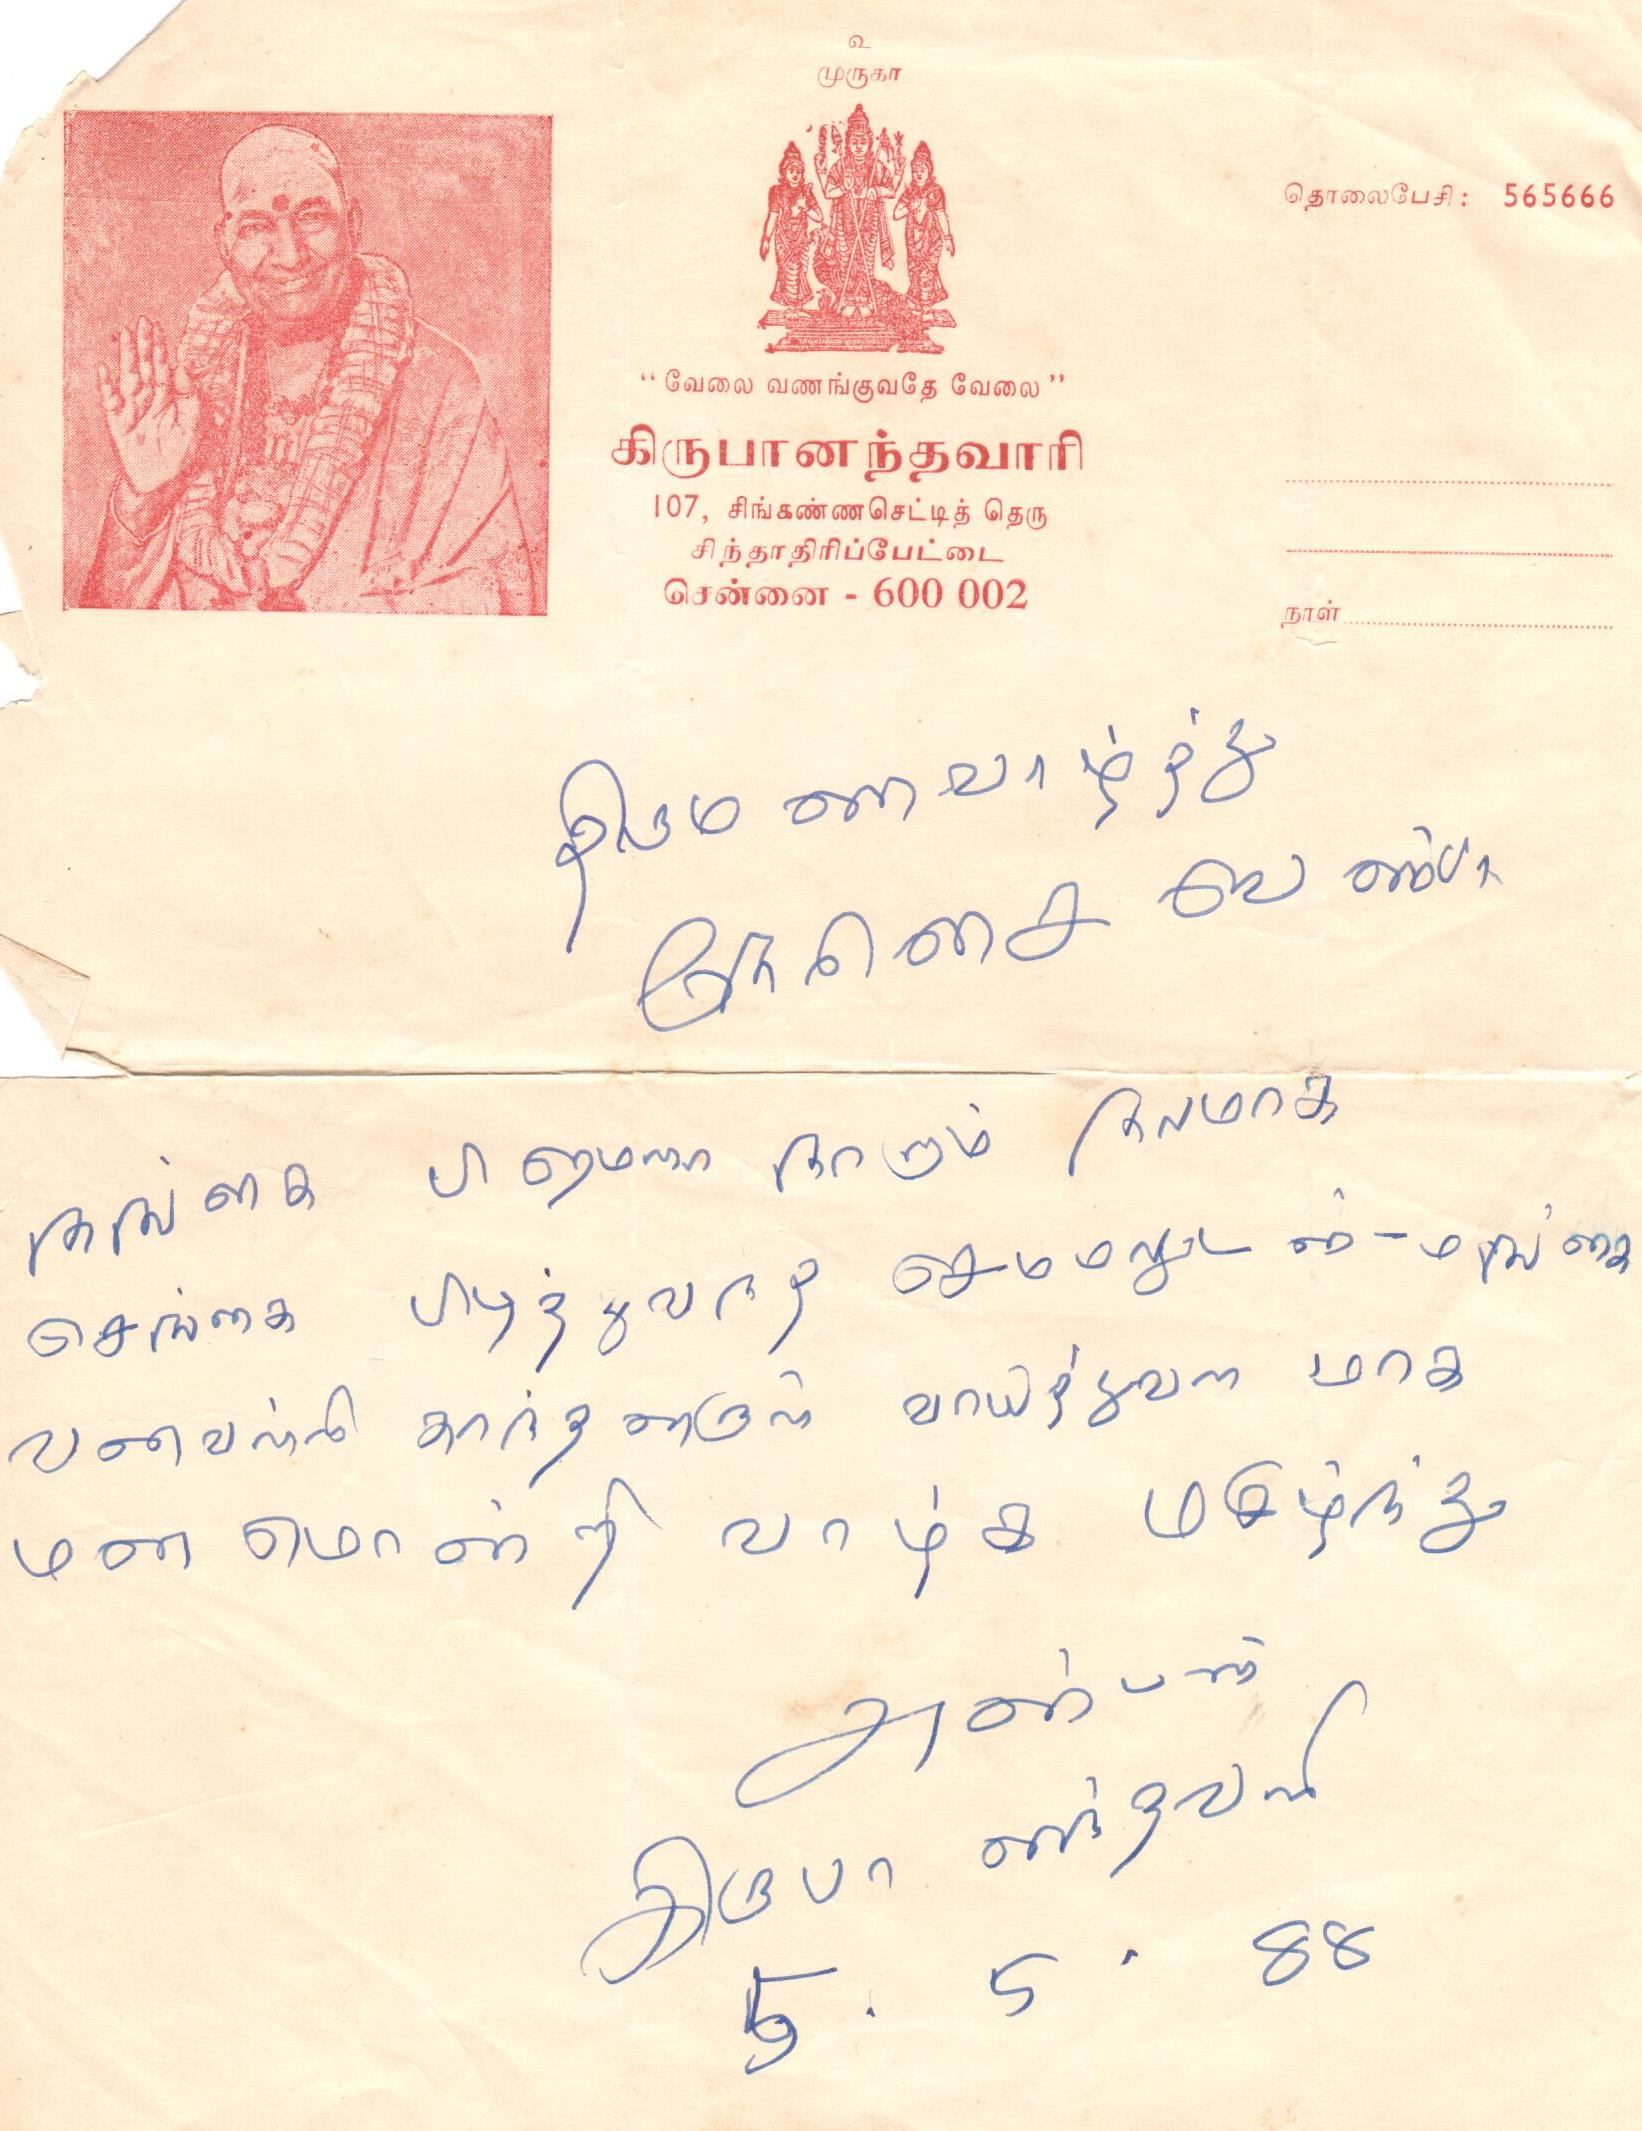 உ
முருகா
தொலைபேசி: 565666
"வேலை வணங்குவதே வேலை"
கிருபானந்தவாரி
107, சிங்கண்ணசெட்டித் தெரு
சிந்தாதிரிப்பேட்டை
சென்னை - 600 002
நாள்
திருமணவாழ்த்து
நேரிசை வெண்பா
நங்கை பிரேமலா நாளும் நலமாக
செங்கை பிடித்துவந்த செம்மலுடன்-மங்கை
வனவல்லி காந்தனருள் வாய்த்துவள மாக
மனமொன்றி வாழ்க மகிழ்ந்து
அன்பன்
கிருபானந்தவாரி
5.5.88